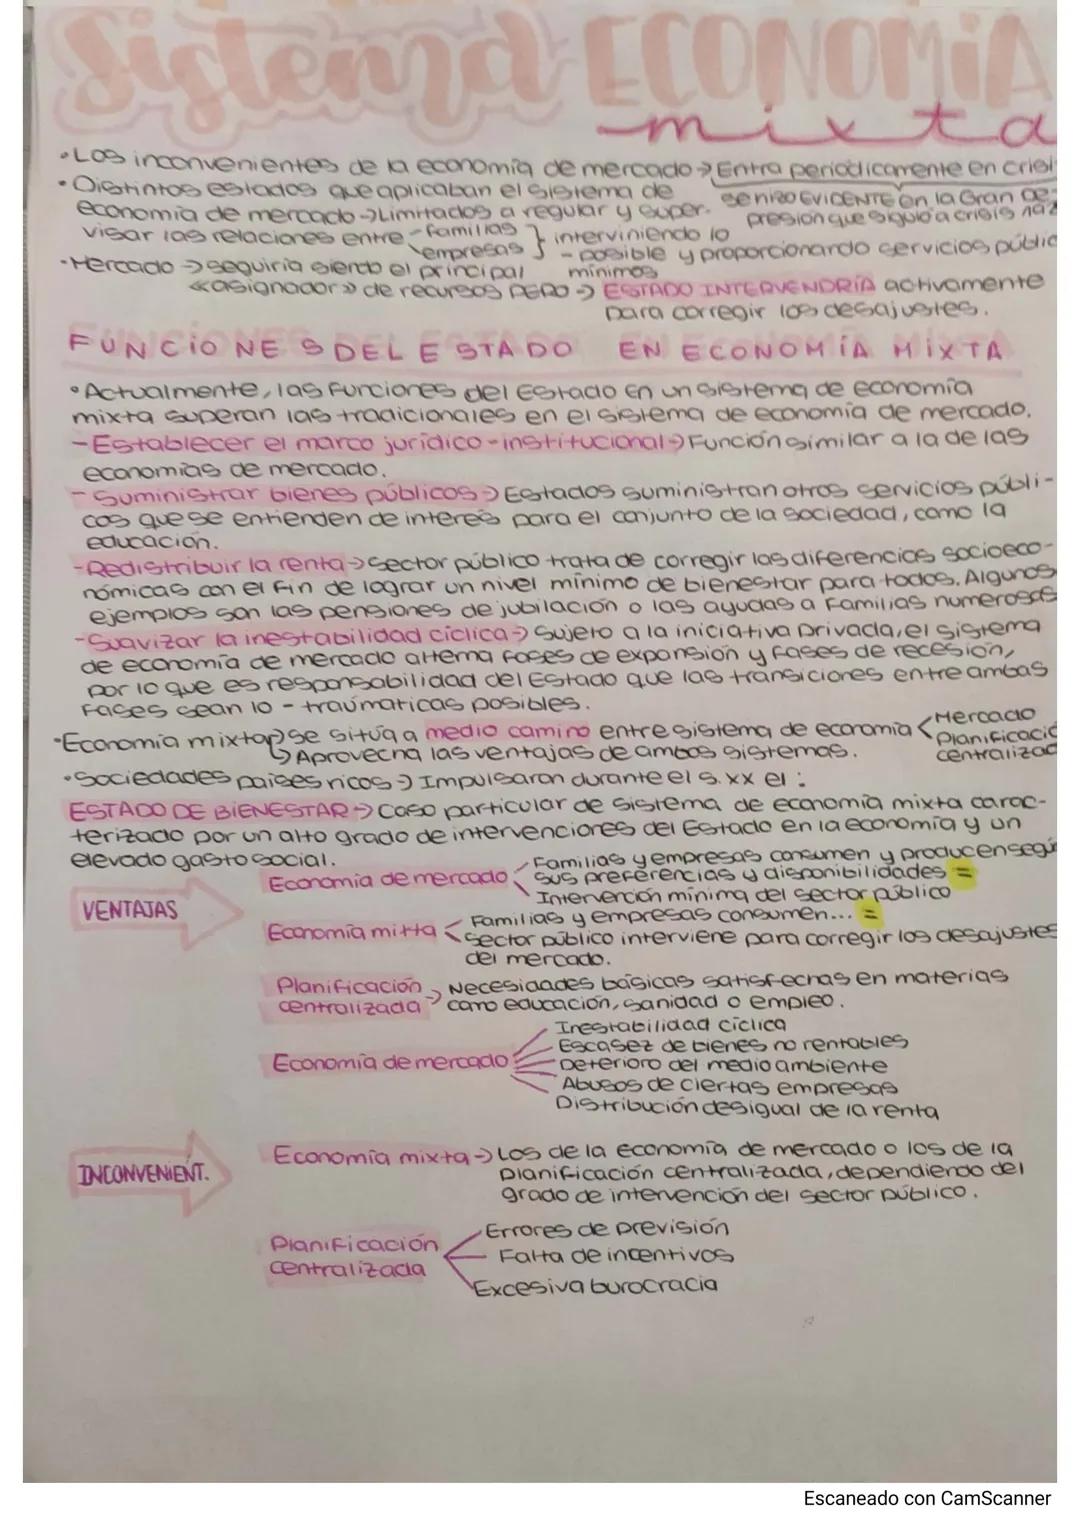 Sistema ECONOMÍA
mixta
•Los inconvenientes de la economía de mercado → Entra periódicamente en crisi
•Distintos estados que aplicaban el sistema de
se hizo EVIDENTE en la Gran De-
economía de mercado → Limitados a regular y super-
presión que siguió a crisis 192
visar las relaciones entre - familias
empresas } interviniendo lo
- posible y proporcionando servicios públic
mínimos
•Mercado → seguiría siendo el principal
«asignador» de recursos PERO → ESTADO INTERVENDRÍA activamente
para corregir los desajustes.
FUNCIONES DEL ESTADO EN ECONOMÍA MIXTA
•Actualmente, las funciones del Estado en un sistema de economía
mixta superan las tradicionales en el sistema de economía de mercado.
-Establecer el marco jurídico-institucional → Función similar a la de las
economías de mercado.
-Suministrar bienes públicos → Estados suministran otros servicios públi-
cos que se entienden de interés para el conjunto de la sociedad, como la
educación.
-Redistribuir la renta → Sector público trata de corregir las diferencias socioeco-
nómicas con el fin de lograr un nivel mínimo de bienestar para todos. Algunos
ejemplos son las pensiones de jubilación o las ayudas a familias numerosas
-Suavizar la inestabilidad cíclica → Sujeto a la iniciativa privada, el sistema
de economía de mercado alterna fases de expansión y fases de recesión,
por lo que es responsabilidad del Estado que las transiciones entre ambas
fases sean lo - traumáticas posibles.
•Economía mixta → se sitúa a medio camino entre sistema de economía < Mercado
Planificació
centralizad
→ Aprovecha las ventajas de ambos sistemas.
•Sociedades países ricos → Impulsaron durante el s. xx el:
ESTADO DE BIENESTAR → Caso particular de sistema de economía mixta carac-
terizado por un alto grado de intervenciones del Estado en la economía y un
elevado gasto social.
VENTAJAS
Economía de mercado
Familias y empresas consumen y producen segú
sus preferencias y disponibilidades =
Intervención mínima del sector público
Economía mixta
Familias y empresas consumen... =
Sector público interviene para corregir los desajustes
del mercado.
Planificación
centralizada
→ Necesidades básicas satisfechas en materias
como educación, sanidad o empleo.
INCONVENIENT.
Economía de mercado
Inestabilidad cíclica
Escasez de bienes no rentables
Deterioro del medio ambiente
Abusos de ciertas empresas
Distribución desigual de la renta
Economía mixta → Los de la economía de mercado o los de la
planificación centralizada, dependiendo del
grado de intervención del sector público.
Planificación
centralizada
Errores de previsión
Falta de incentivos
Excesiva burocracia
Escaneado con CamScanner